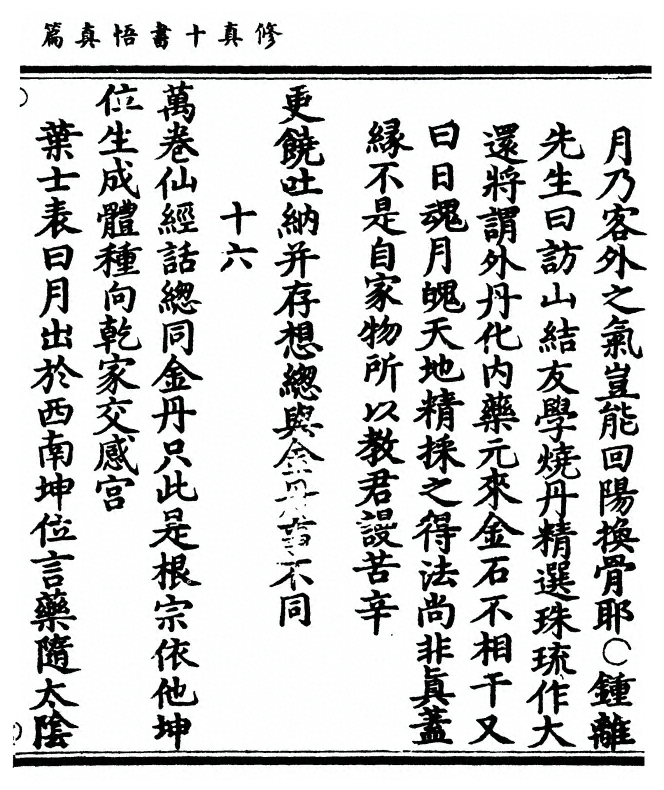 修真十書悟真篇
月乃客外之氣豈能回陽換骨耶○鍾離
先生曰訪山結友學燒丹精選珠琉作大
還將謂外丹化內藥元來金石不相干又
曰日魂月魄天地精採之得法尚非眞蓋
縁不是自家物所以教君謾苦辛
更饒吐納并存想緫與金丹事不同
十六
萬卷仙經話緫同金丹只此是根宗依他坤
位生成體種向乾家交感宫
葉士表曰月出於西南坤位言藥隨太陰